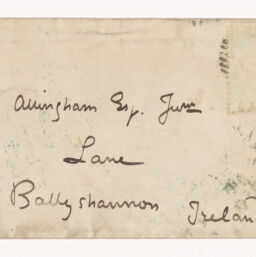 Allingham Esq. Junr
Lane
Ballyshannon Irelan